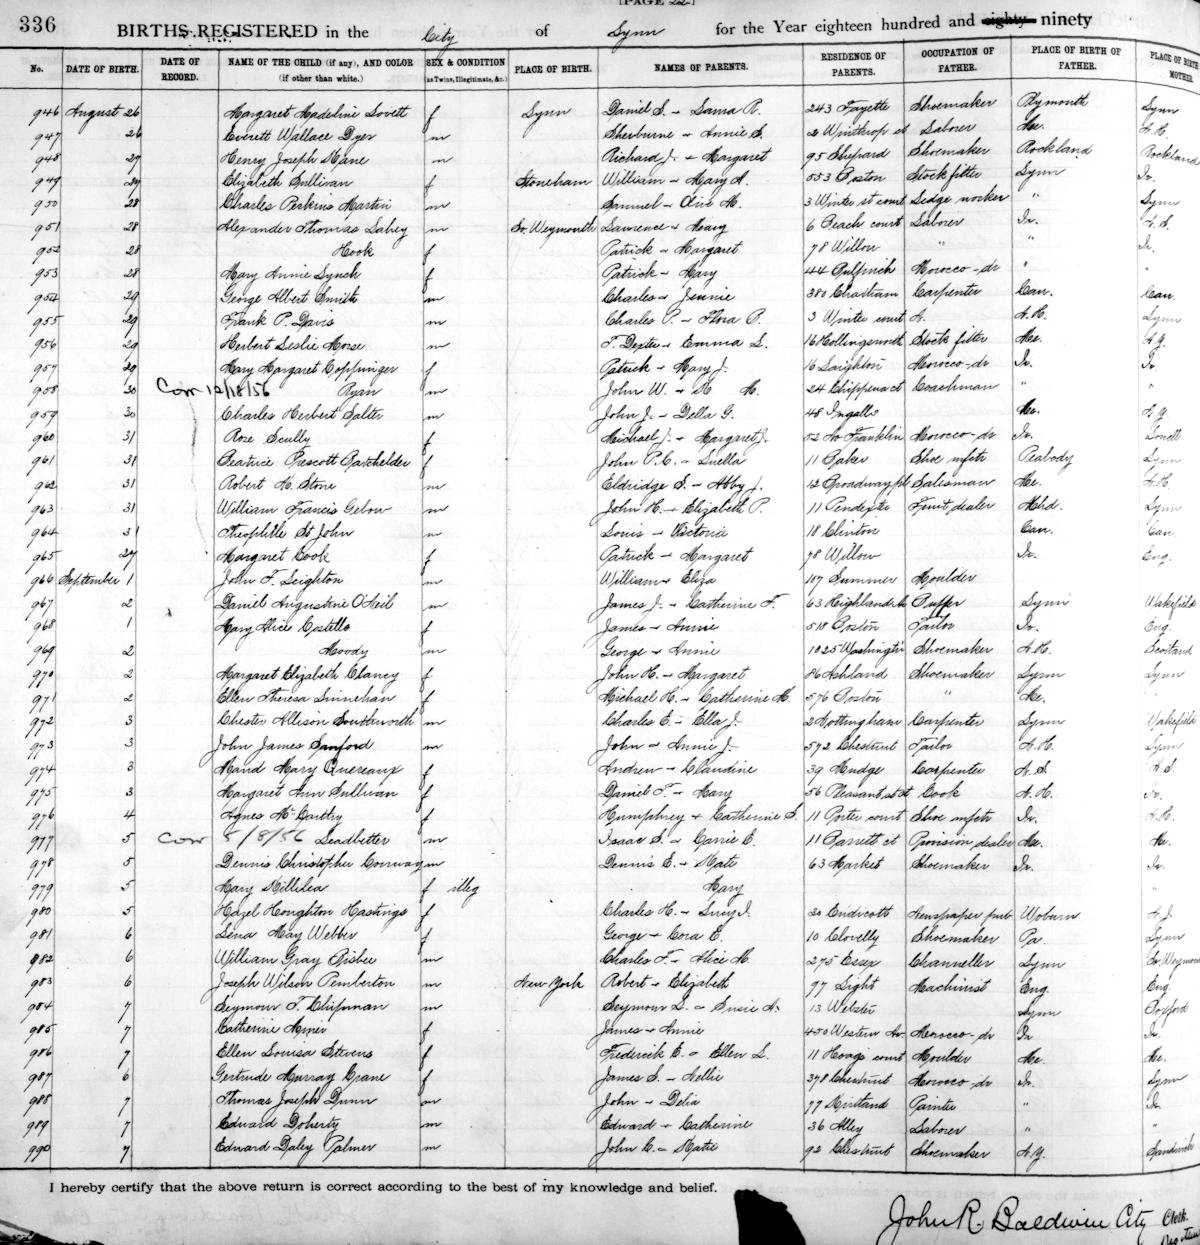 [PAGE 22]
336 BIRTHS REGISTERED in the City of Lynn for the Year eighteen hundred and eighty ninety
No. DATE OF BIRTH. DATE OF RECORD. NAME OF THE CHILD (if any), AND COLOR (if other than white.) SEX & CONDITION (as Twins, Illegitimate, &c.) PLACE OF BIRTH. NAMES OF PARENTS. RESIDENCE OF PARENTS. OCCUPATION OF FATHER. PLACE OF BIRTH OF FATHER. PLACE OF BIRTH MOTHER
946 August 26 Margaret Madeline Lovett f Lynn Daniel S. - 243 Fayette Shoemaker Plymouth Lynn
947 26 Everett Wallace Dyer m Sherburne - Annie S. 2 Winthrop st Laborer Me. N.H.
948 27 Henry Joseph Kane m Richard J. - Margaret 95 Shepard Shoemaker Rockland Rockland
949 29 Elizabeth Sullivan f Stoneham William - Mary A. 553 Boston Stockfitter Lynn Ir.
950 28 Charles Perkins Martin m Samuel - Olive M. 3 Winter st court Ledge worker " Lynn
951 28 Alexander Thomas m So. Weymouth Lawrence - Mary 6 Beach court Laborer Ir. N.S.
952 28 Hook f Patrick - Margaret 78 Willow " " Ir.
953 28 Mary Annie Lynch f Patrick - Mary 44 Bulfinch Morocco-dr " "
954 29 George Albert Smith m Charles - Jennie 380 Chatham Carpenter Can. Can.
955 29 Frank P. Davis m Charles P. - Flora B. 3 Winter court N.H. Lynn
956 29 Herbert Leslie Morse m F. Dexter - Emma L. 16 Hollingsworth Stock fitter Me. N.Y.
957 29 Mary Margaret Coppinger f Patrick - Mary J. 16 Laighton Morocco-dr Ir. Ir.
958 30 Corr 12/18/56 Ryan m John W. - N M. 24 Chippewa ct Coachman " "
959 30 Charles Herbert Salter m John J. - Della G. 48 Ingalls Me. N.Y.
960 31 Rose Scully f Michael J. - Margaret J. 52 No Franklin Morocco-dr Ir. Lowell
961 31 Beatrice Prescott Batchelder f John P.C. - Luella 11 Baker Shoe mfctr Peabody Lynn
962 31 Robert H. Stone m Eldridge S. - Abby J. 12 Broadway pl Salesman Me. N.H.
963 31 William Francis Gebow m John H. - Elizabeth P. 11 Fruit dealer Mhd. Lynn
964 31 Theophille St John m Louis - Victoria 18 Clinton Can. Can
965 27 Margaret Cook f Patrick - Margaret 78 Willow Ir. Eng.
966 September 1 John F. Leighton m William - Eliza 107 Summer Moulder
967 2 Daniel Augustine O'Neil m James J. - Catherine F. 63 Highland Buffer Lynn Wakefield
968 1 Mary Alice Costello f James - Annie 518 Boston Tailor Ir. Eng.
969 2 Moody m George - Annie 1025 Washingt'n Shoemaker N.H. Scotland
970 2 Margaret Elizabeth Clancy f John H. - Margaret 86 Ashland Shoemaker Lynn Lynn
971 2 Ellen Theresa Linnehan f Michael H. - Catherine M. 576 Boston " Me. "
972 3 Chester Allison Southworth m Charles E. - Ella J. 2 Nottingham Carpenter Lynn Wakefield
973 3 John James Sanford m John - Annie J. 592 Chestnut Tailor N.H. Lynn
974 3 Maud Mary Quereaux f Andrew - Claudine 39 Mudge Carpenter N.S. N.S.
975 3 Margaret Ann Sullivan f Daniel F. - Mary 56 Pleasant st ct Cook N.H. Ir.
976 4 Agnes Mc Cartley f Humphrey - Catherine S. 11 Porter court Shoe mfctr Ir. N.H.
977 5 Corr 8/8/56 Leadbetter m Isaac S. - Carrie E. 11 Barrett ct Provision dealer Me. Me.
978 5 Dennis Christopher Conway m Dennis E. - Kate 63 Market Shoemaker Ir. Ir.
979 5 Mary Killilea f illeg Mary "
980 5 Hazel Houghton Hastings f Charles H. - Lucy I. 20 Endicott Newspaper pub Woburn N.J.
981 6 Lena May Webber f George - Cora E. 10 Clovelly Shoemaker Pa. Lynn
982 6 William Gray Bisbee m Charles F. - Alice M. 275 Essex Channeller Lynn So. Weymou
983 6 Joseph Wilson Pemberton m New York Robert - Elizabeth 97 Light Machinist Eng. Eng.
984 7 Seymour F. Chipman m Seymour L. - Susie A. 13 Webster Lynn Boxford
985 7 Catherine f James - Annie 450 Western Av. Morocco-dr Ir Ir.
986 7 Ellen Louisa Stevens f Frederick E. - Ellen L. 11 court Moulder Me. Me.
987 6 Gertrude Murray Crane f James S. - Nellie 278 Chestnut Morocco-dr Ir. Lynn
988 7 Thomas Joseph Dunn m John - Delia 77 Kirtland Painter " Ir.
989 7 Edward Doherty m Edward - Catherine 36 Alley Laborer " "
990 7 Edward Daley Palmer m John C. - Katie 92 Chestnut Shoemaker N.Y. Sandwich
I hereby certify that the above return is correct according to the best of my knowledge and belief.
John R Baldwin City Clerk.